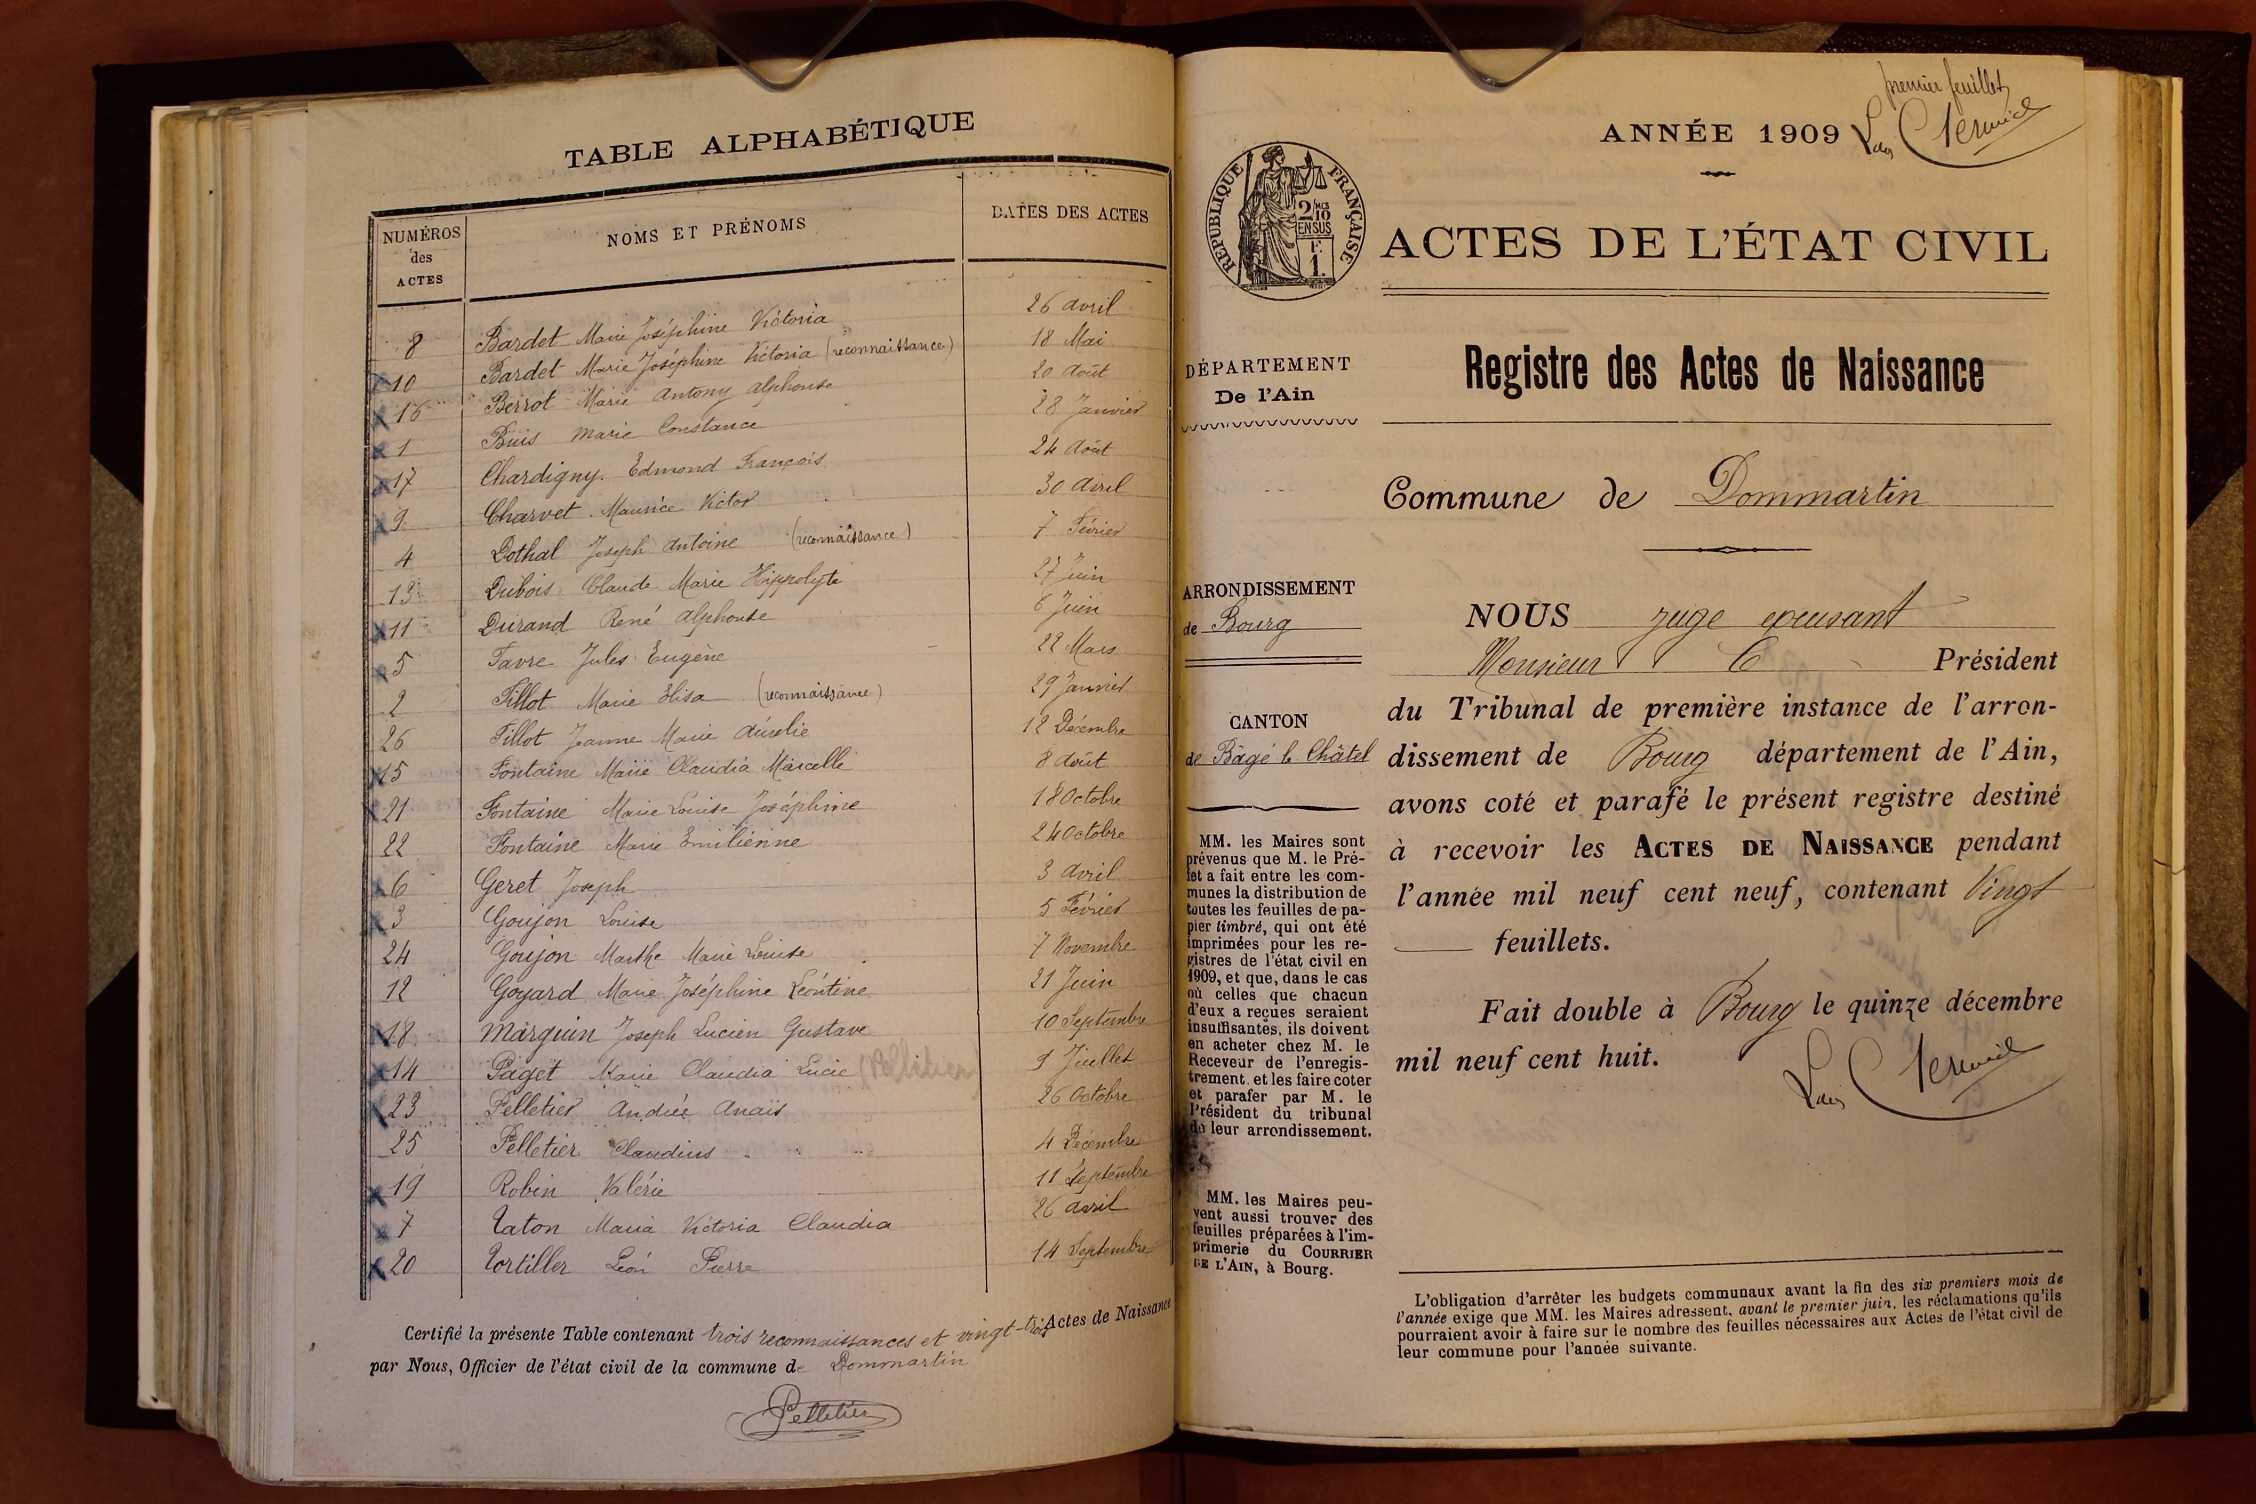 TABLE ALPHABÉTIQUE
NUMÉROS des ACTES NOMS ET PRÉNOMS DATES DES ACTES
8 Bardet Marie Joséphine Victoria 26 avril
10 Bardet Marie Joséphine Victoria (reconnaissance) 18 Mai
16 Berrot Marie Antony Alphonse 20 Août
1 Buis Marie Constance 28 Janvier
17 Chardigny Edmond François 24 Août
9 Charvet Maurice Victor 30 Avril
4 Dothal Joseph Antoine (reconnaissance) 7 Février
13 Dubois Claude Marie Hippolyte 27 Juin
11 Durand René Alphonse 6 Juin
5 Favre Jules Eugène 22 Mars
2 Fillot Marie Elisa (reconnaissance) 29 Janvier
26 Fillot Jeanne Marie Aurélie 12 Décembre
15 Fontaine Marie Claudia Marcelle 8 Août
21 Fontaine Marie Louise Joséphine 18 Octobre
22 Fontaine Marie Emilienne 24 Octobre
6 Geret Joseph 3 Avril
3 Goujon Louise 5 Février
24 Goujon Marthe Marie Louise 7 Novembre
12 Goyard Marie Joséphine Léontine 21 Juin
18 Marguin Joseph Lucien Gustave 10 Septembre
14 Paget Marie Claudia Lucie 9 Juillet
23 Pelletier Andrée Anaïs 26 Octobre
25 Pelletier Claudius 4 Décembre
19 Robin Valérie 11 Septembre
7 Taton Maria Victoria Claudia 26 Avril
20 Tortiller Léon Pierre 14 Septembre
Certifié la présente Table contenant trois reconnaissances et vingt-trois Actes de Naissance
par Nous, Officier de l'état civil de la commune de Dommartin
Pelletier
premier feuillet
ANNÉE 1909
RÉPUBLIQUE FRANÇAISE
2/10 EN SUS
F. 1.
ACTES DE L'ÉTAT CIVIL
DÉPARTEMENT
De l'Ain
Registre des Actes de Naissance
Commune de Dommartin
ARRONDISSEMENT
de Bourg
CANTON
de Bâgé le Châtel
MM. les Maires sont
prévenus que M. le Pré-
fet a fait entre les com-
munes la distribution de
toutes les feuilles de pa-
pier timbré, qui ont été
imprimées pour les re-
gistres de l'état civil en
1909, et que, dans le cas
où celles que chacun
d'eux a reçues seraient
insuffisantes, ils doivent
en acheter chez M. le
Receveur de l'enregis-
trement, et les faire coter
et parafer par M. le
Président du tribunal
de leur arrondissement.
MM. les Maires peu-
vent aussi trouver des
feuilles préparées à l'im-
primerie du COURRIER
DE L'AIN, à Bourg.
NOUS juge
Monsieur Président
du Tribunal de première instance de l'arron-
dissement de Bourg département de l'Ain,
avons coté et parafé le présent registre destiné
à recevoir les ACTES DE NAISSANCE pendant
l'année mil neuf cent neuf, contenant Vingt
feuillets.
Fait double à Bourg le quinze décembre
mil neuf cent huit.
L'obligation d'arrêter les budgets communaux avant la fin des six premiers mois de
l'année exige que MM. les Maires adressent, avant le premier juin, les réclamations qu'ils
pourraient avoir à faire sur le nombre des feuilles nécessaires aux Actes de l'état civil de
leur commune pour l'année suivante.